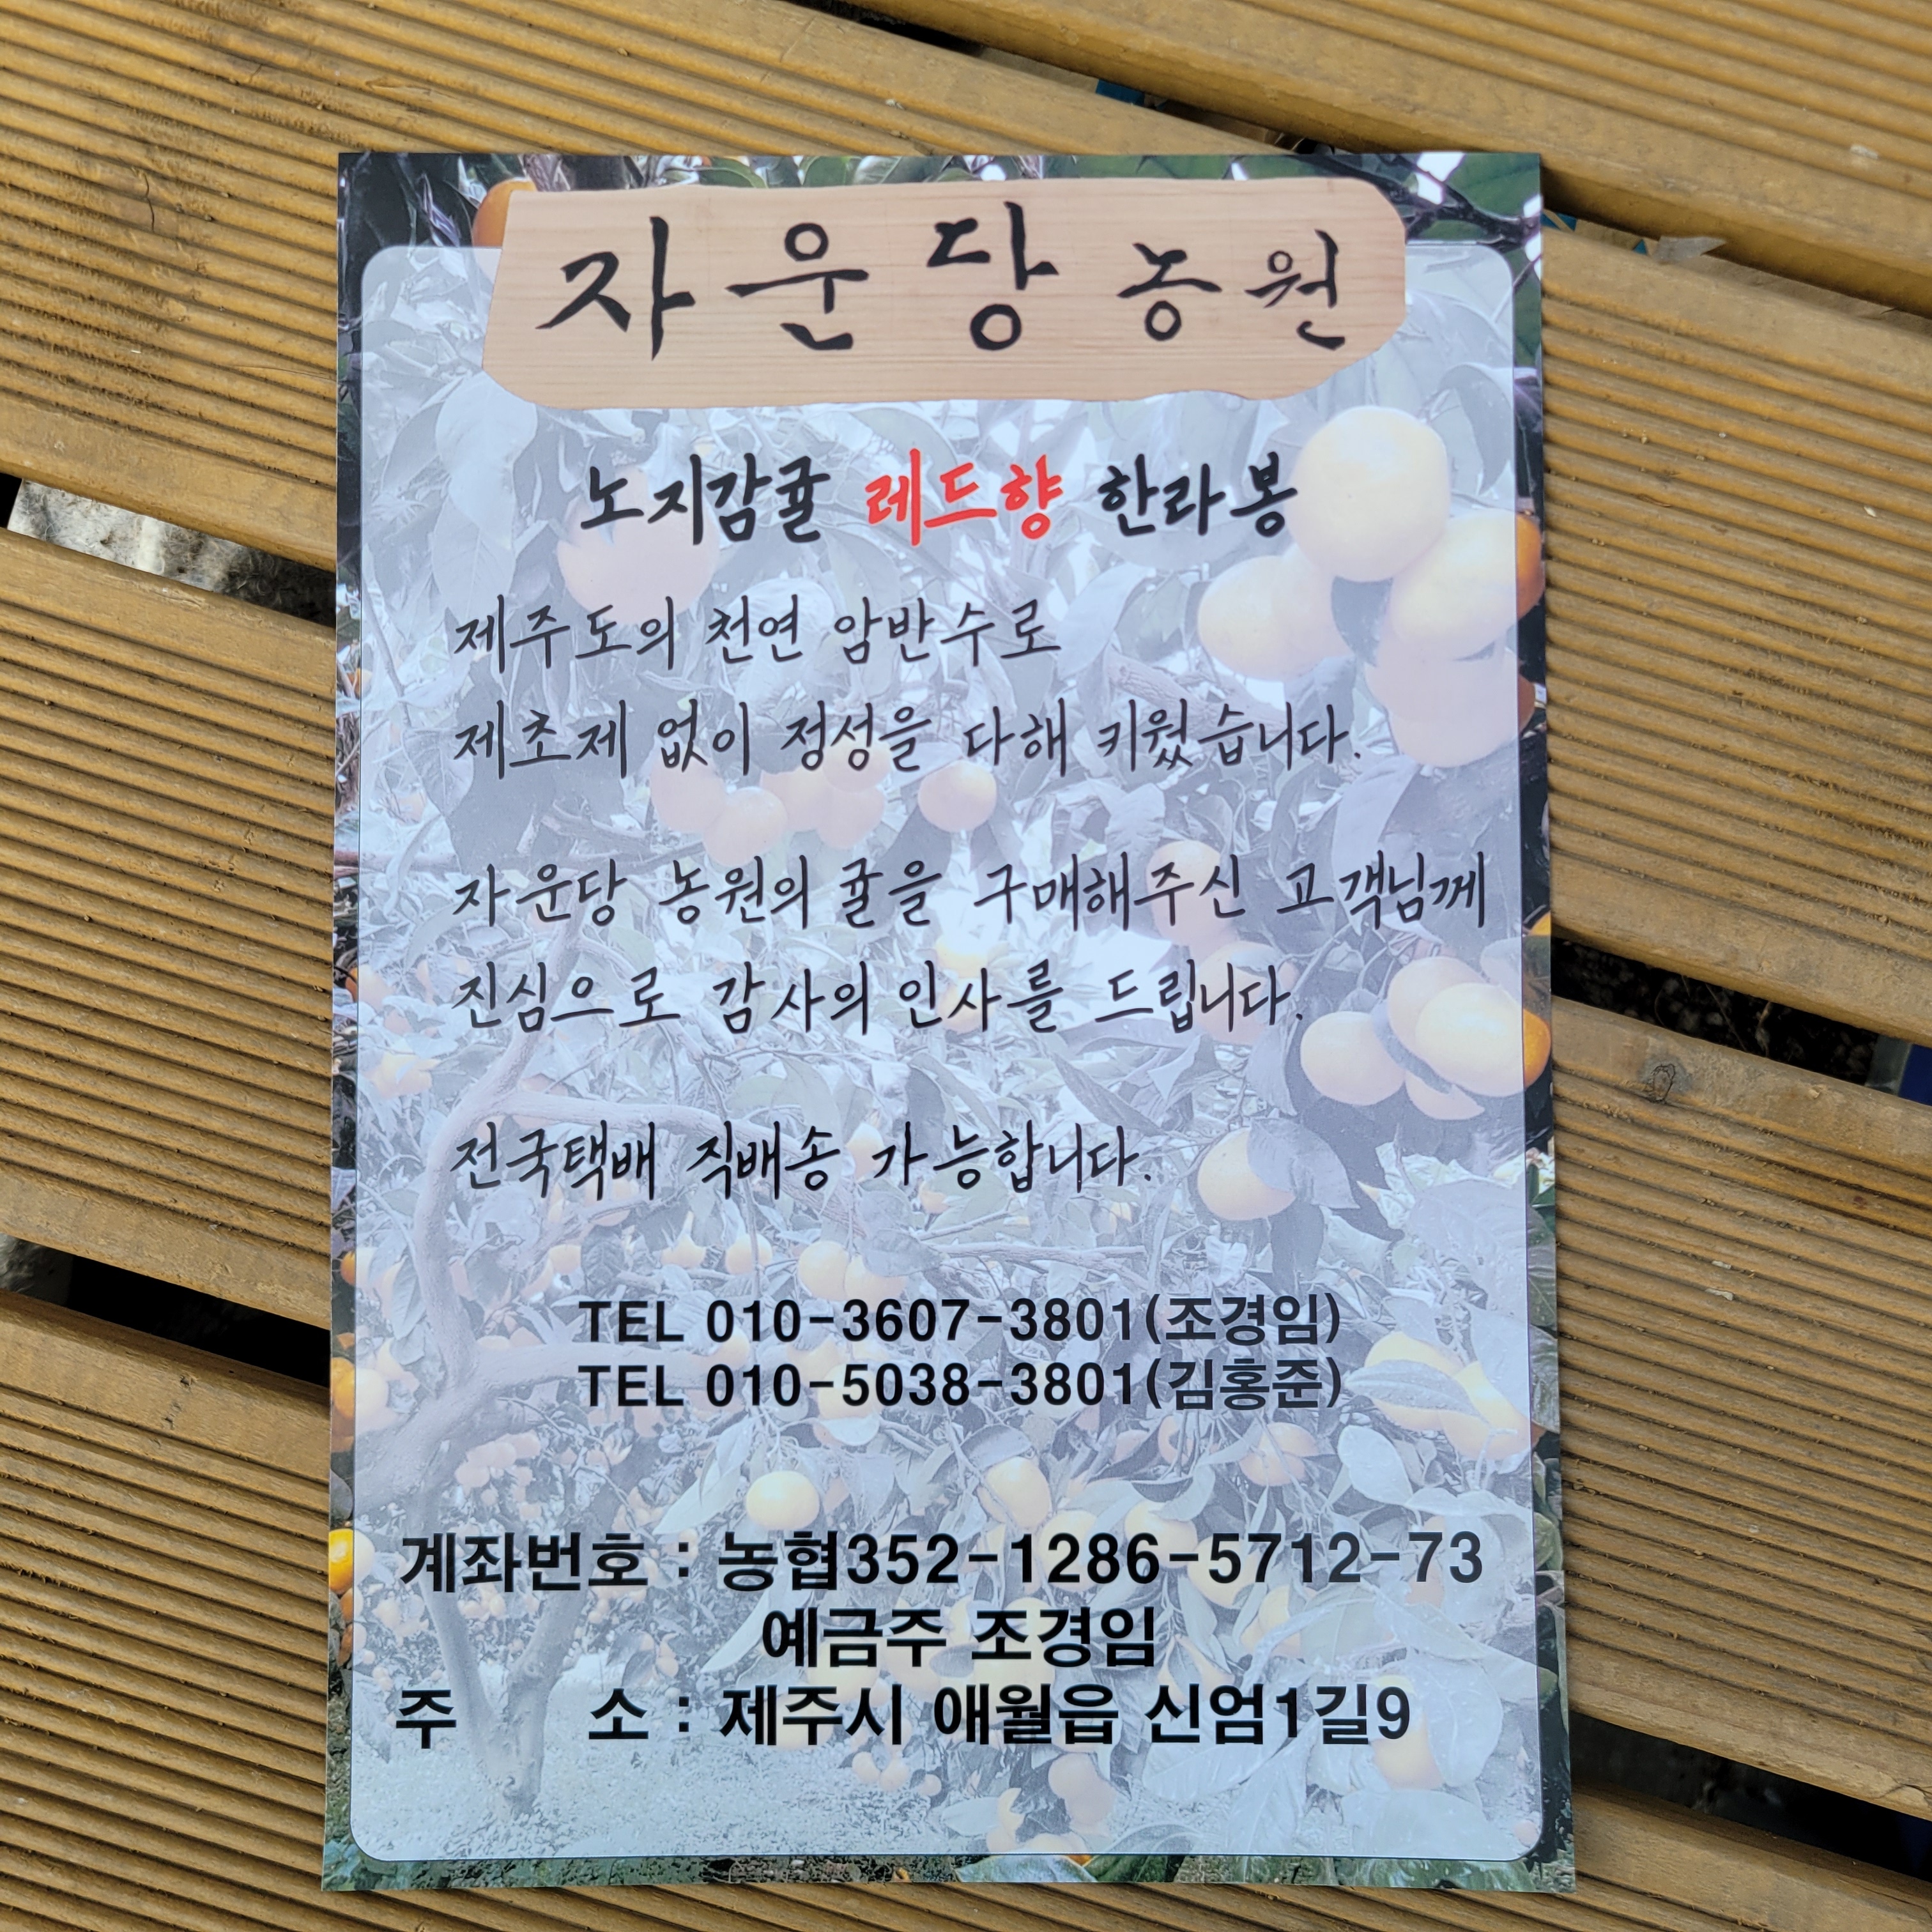 자운당 농원
노지감귤 레드향 한라봉
제주도의 천연 암반수로
제초제 없이 정성을 다해 키웠습니다.
자운당 농원의 귤을 구매해주신 고객님께
진심으로 감사의 인사를 드립니다.
전국택배 직배송 가능합니다.
TEL 010-3607-3801(조경임)
TEL 010-5038-3801(김홍준)
계좌번호 : 농협352-1286-5712-73
예금주 조경임
주 소 : 제주시 애월읍 신엄1길9